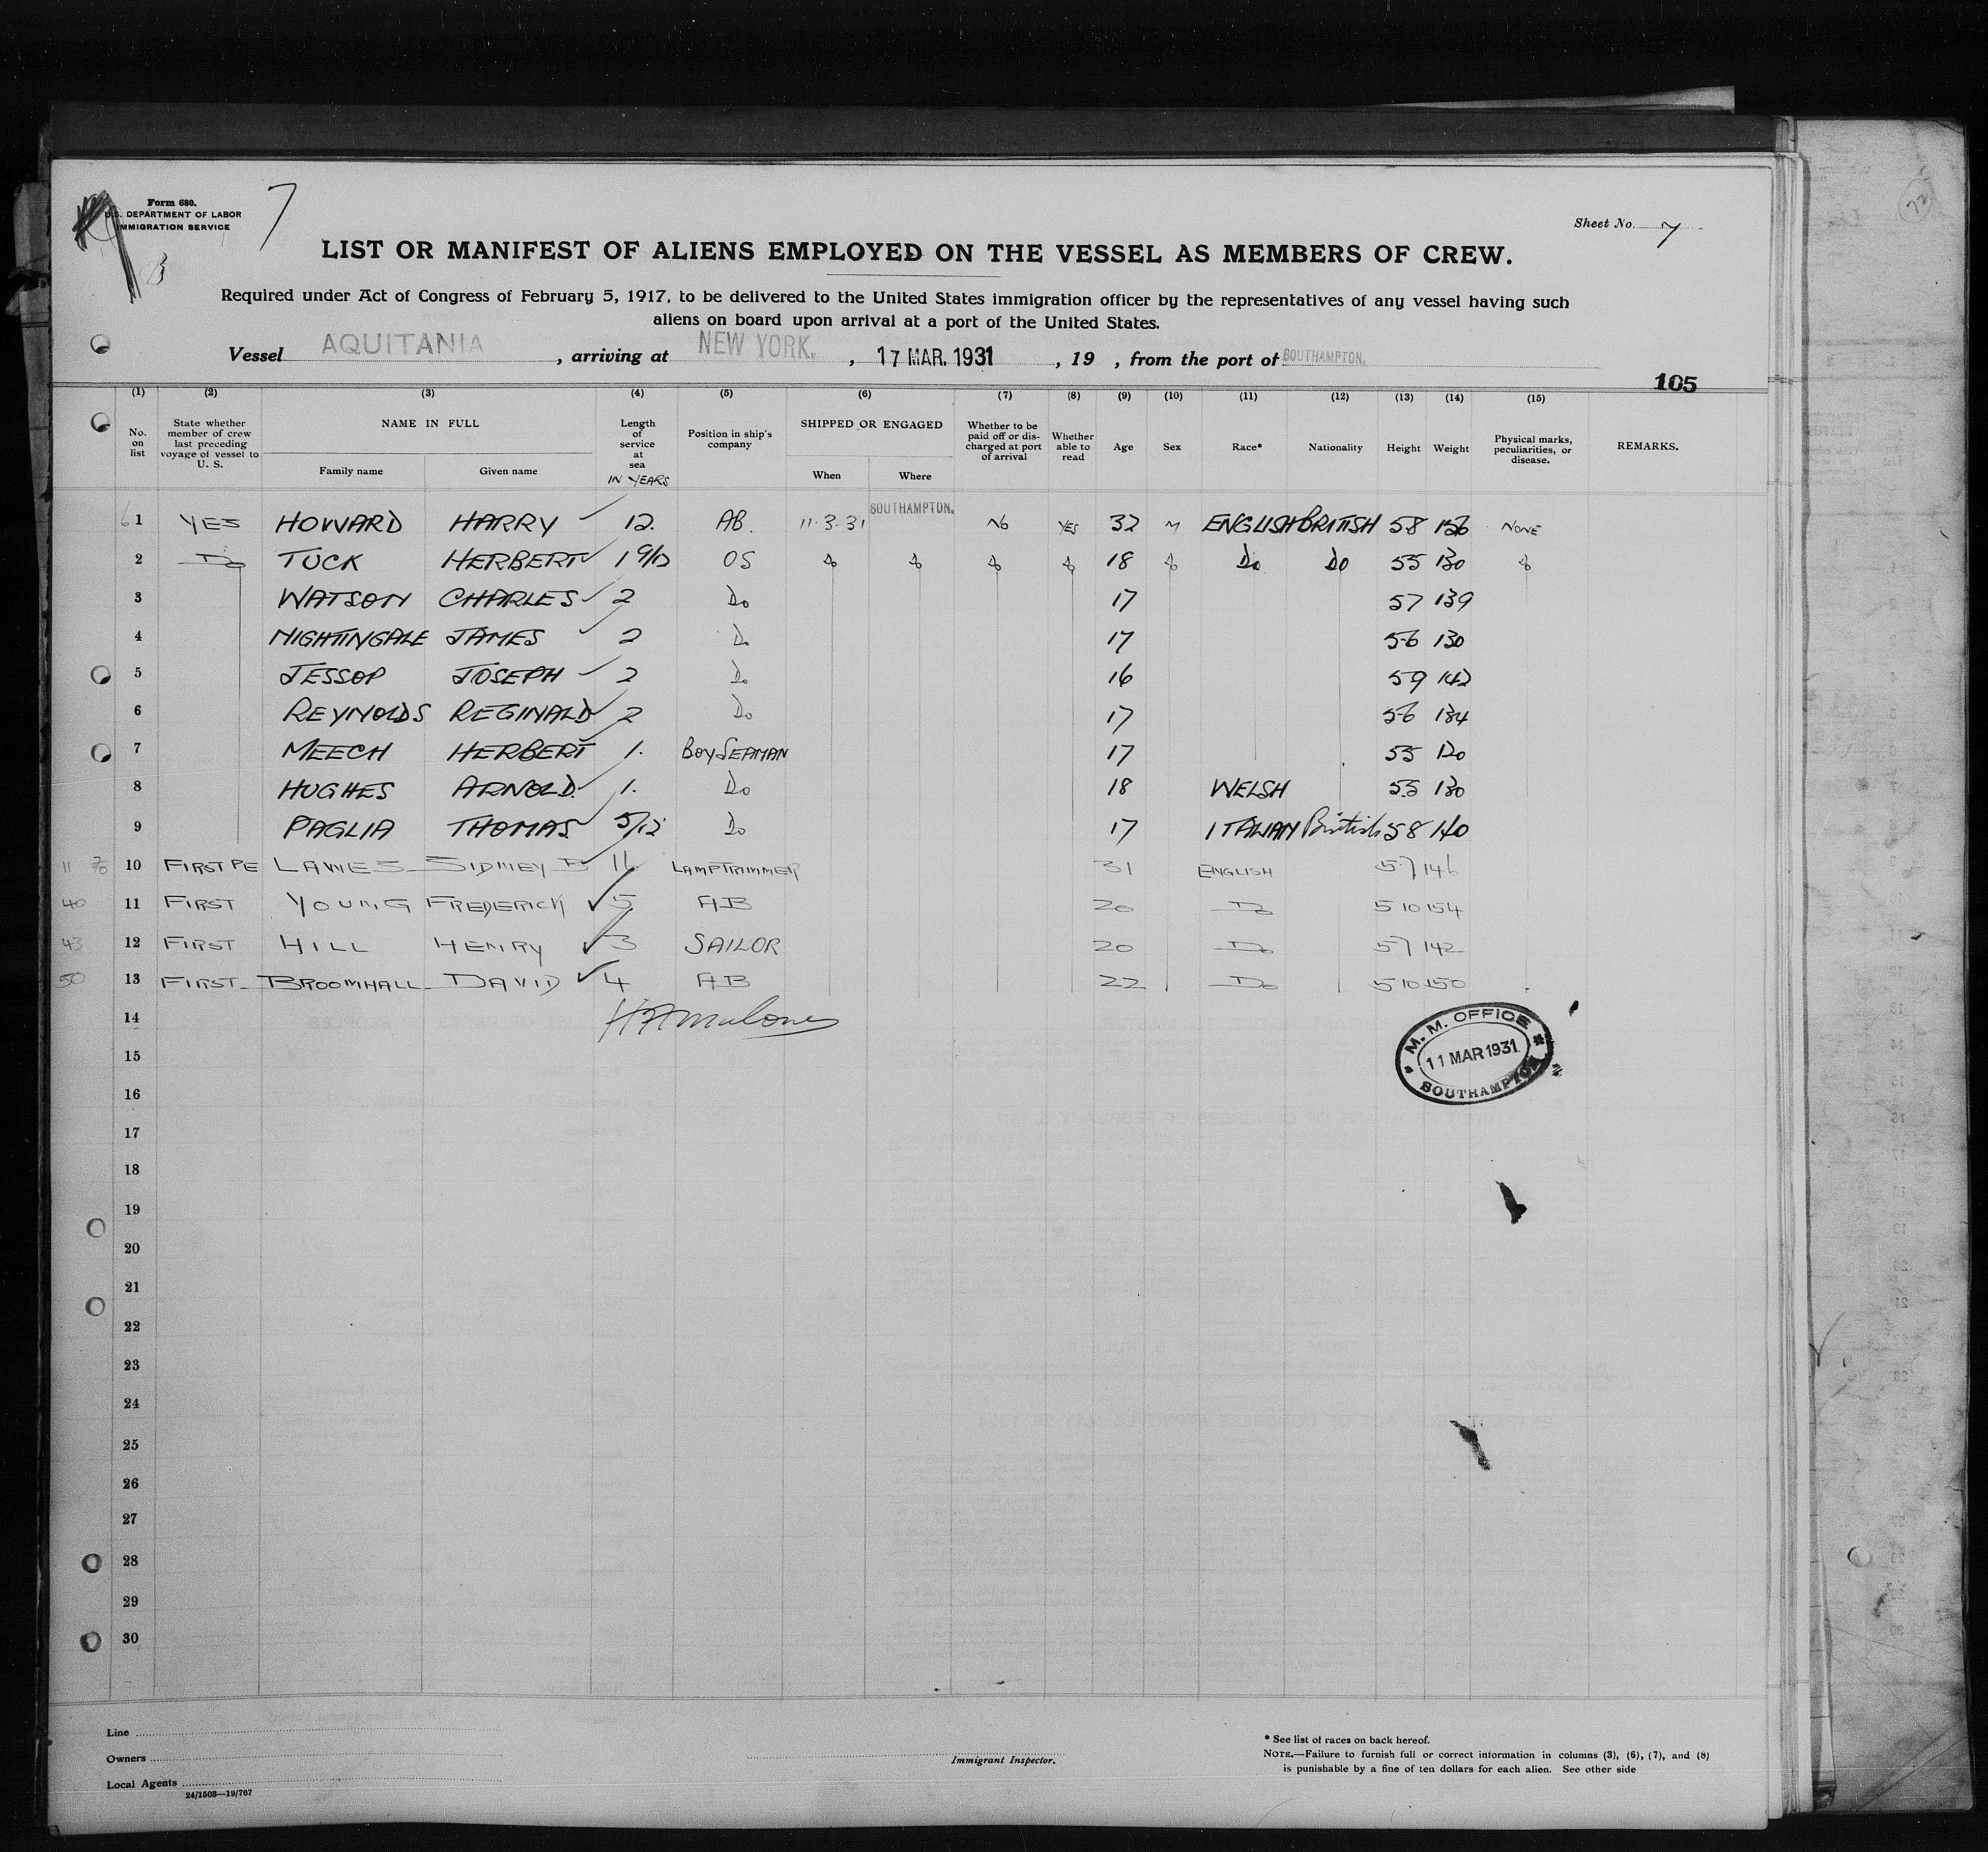 Form 680.
U.S. DEPARTMENT OF LABOR
IMMIGRATION SERVICE
7
Sheet No. 7
LIST OR MANIFEST OF ALIENS EMPLOYED ON THE VESSEL AS MEMBERS OF CREW.
Required under Act of Congress of February 5, 1917, to be delivered to the United States immigration officer by the representatives of any vessel having such
aliens on board upon arrival at a port of the United States.
Vessel AQUITANIA, arriving at NEW YORK., 17 MAR. 1931, 19 , from the port of SOUTHAMPTON.
105
(1) (2) (3) (4) (5) (6) (7) (8) (9) (10) (11) (12) (13) (14) (15)
No. on list State whether member of crew last preceding voyage of vessel to U. S. NAME IN FULL Family name Given name Length of service at sea IN YEARS Position in ship's company SHIPPED OR ENGAGED When Where Whether to be paid off or discharged at port of arrival Whether able to read Age Sex Race* Nationality Height Weight Physical marks, peculiarities, or disease. REMARKS.
1 YES HOWARD HARRY 12. AB. 11.3.31 SOUTHAMPTON. NO YES 32 M ENGLISH BRITISH 58 156 NONE
2 Do TUCK HERBERT 1 9/12 OS do do do do 18 do Do Do 55 130 do
3 WATSON CHARLES 2 Do 17 57 139
4 NIGHTINGALE JAMES 2 Do 17 56 130
5 JESSOP JOSEPH 2 Do 16 59 142
6 REYNOLDS REGINALD 2 Do 17 56 134
7 MEECH HERBERT 1. BOY SEAMAN 17 55 120
8 HUGHES ARNOLD. 1. Do 18 WELSH 55 130
9 PAGLIA THOMAS 5/12 Do 17 ITALIAN British 58 140
10 FIRST PE LAWES SIDNEY 16 LAMPTRIMMER 31 ENGLISH 57 146
40 11 FIRST YOUNG FREDERICK 5 AB 20 Do 5 10 154
43 12 FIRST HILL HENRY 3 SAILOR 20 Do 57 142
50 13 FIRST BROOMHALL DAVID 4 AB 22 Do 5 10 150
14
M. M. OFFICE
11 MAR 1931
SOUTHAMPTON
15
16
17
18
19
20
21
22
23
24
25
26
27
28
29
30
Line
Owners
Local Agents
24/1503—19/767
Immigrant Inspector.
* See list of races on back hereof.
NOTE.—Failure to furnish full or correct information in columns (3), (6), (7), and (8)
is punishable by a fine of ten dollars for each alien. See other side